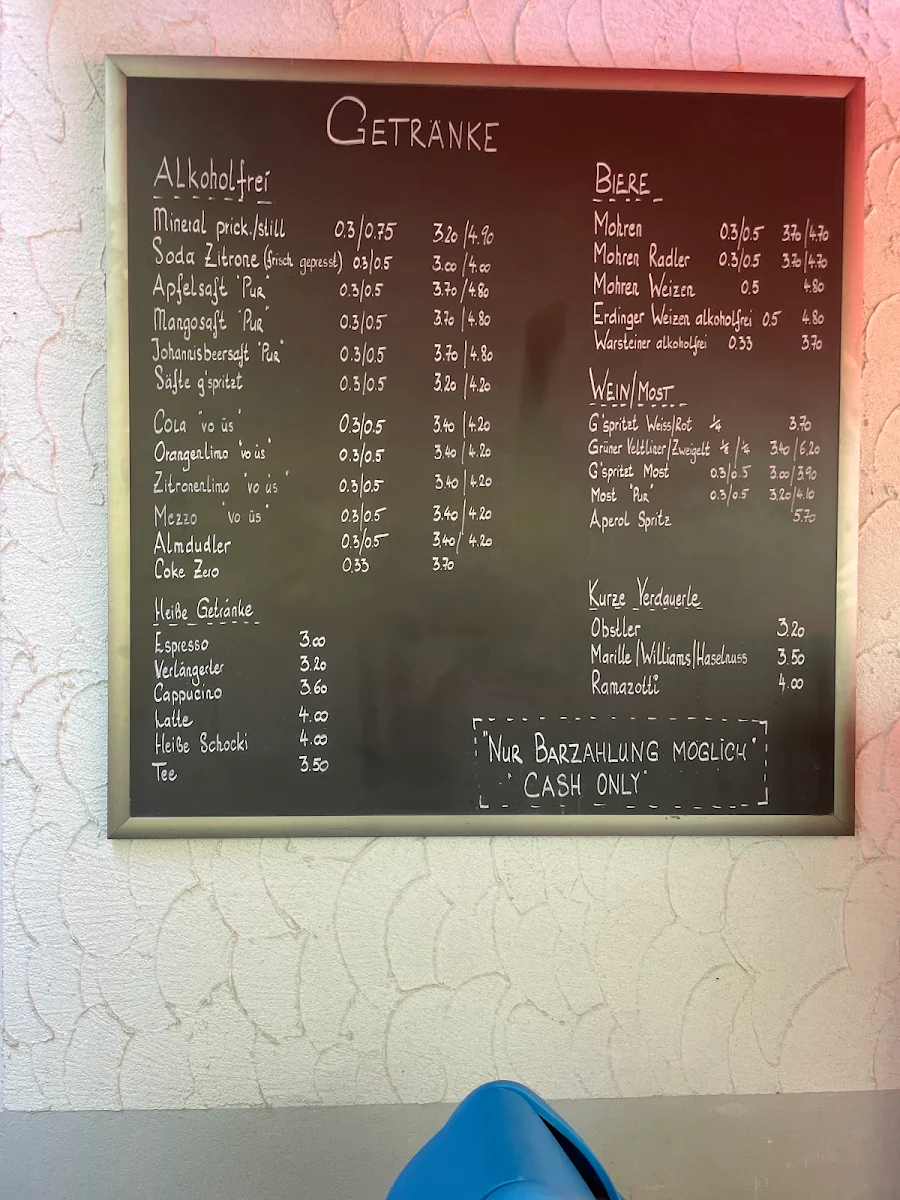 GETRÄNKE
ALkoholfrei
Mineral prick./still 0.3/0.75 3.20/4.90
Soda Zitrone (frisch gepresst) 0.3/0.5 3.00/4.00
Apfelsaft "Pur" 0.3/0.5 3.70/4.80
Mangosaft "Pur" 0.3/0.5 3.70/4.80
Johannisbeersaft "Pur" 0.3/0.5 3.70/4.80
Säfte g'spritzt 0.3/0.5 3.20/4.20
Cola "vo üs" 0.3/0.5 3.40/4.20
Orangenlimo "vo üs" 0.3/0.5 3.40/4.20
Zitronenlimo "vo üs" 0.3/0.5 3.40/4.20
Mezzo "vo üs" 0.3/0.5 3.40/4.20
Almdudler 0.3/0.5 3.40/4.20
Coke Zero 0.33 3.70
Heiße Getränke
Espresso 3.00
Verlängerter 3.20
Cappucino 3.60
Latte 4.00
Heiße Schocki 4.00
Tee 3.50
BIERE
Mohren 0.3/0.5 3.70/4.70
Mohren Radler 0.3/0.5 3.70/4.70
Mohren Weizen 0.5 4.80
Erdinger Weizen alkoholfrei 0.5 4.80
Warsteiner alkoholfrei 0.33 3.70
WEIN/MOST
G'spritzt Weiss/Rot ¼ 3.70
Grüner Veltliner/Zweigelt ⅛/¼ 3.40/6.20
G'spritzt Most 0.3/0.5 3.00/3.90
Most "Pur" 0.3/0.5 3.20/4.10
Aperol Spritz 5.70
Kurze Verdauerle
Obstler 3.20
Marille/Williams/Haselnuss 3.50
Ramazotti 4.00
"NUR BARZAHLUNG MÖGLICH"
"CASH ONLY"